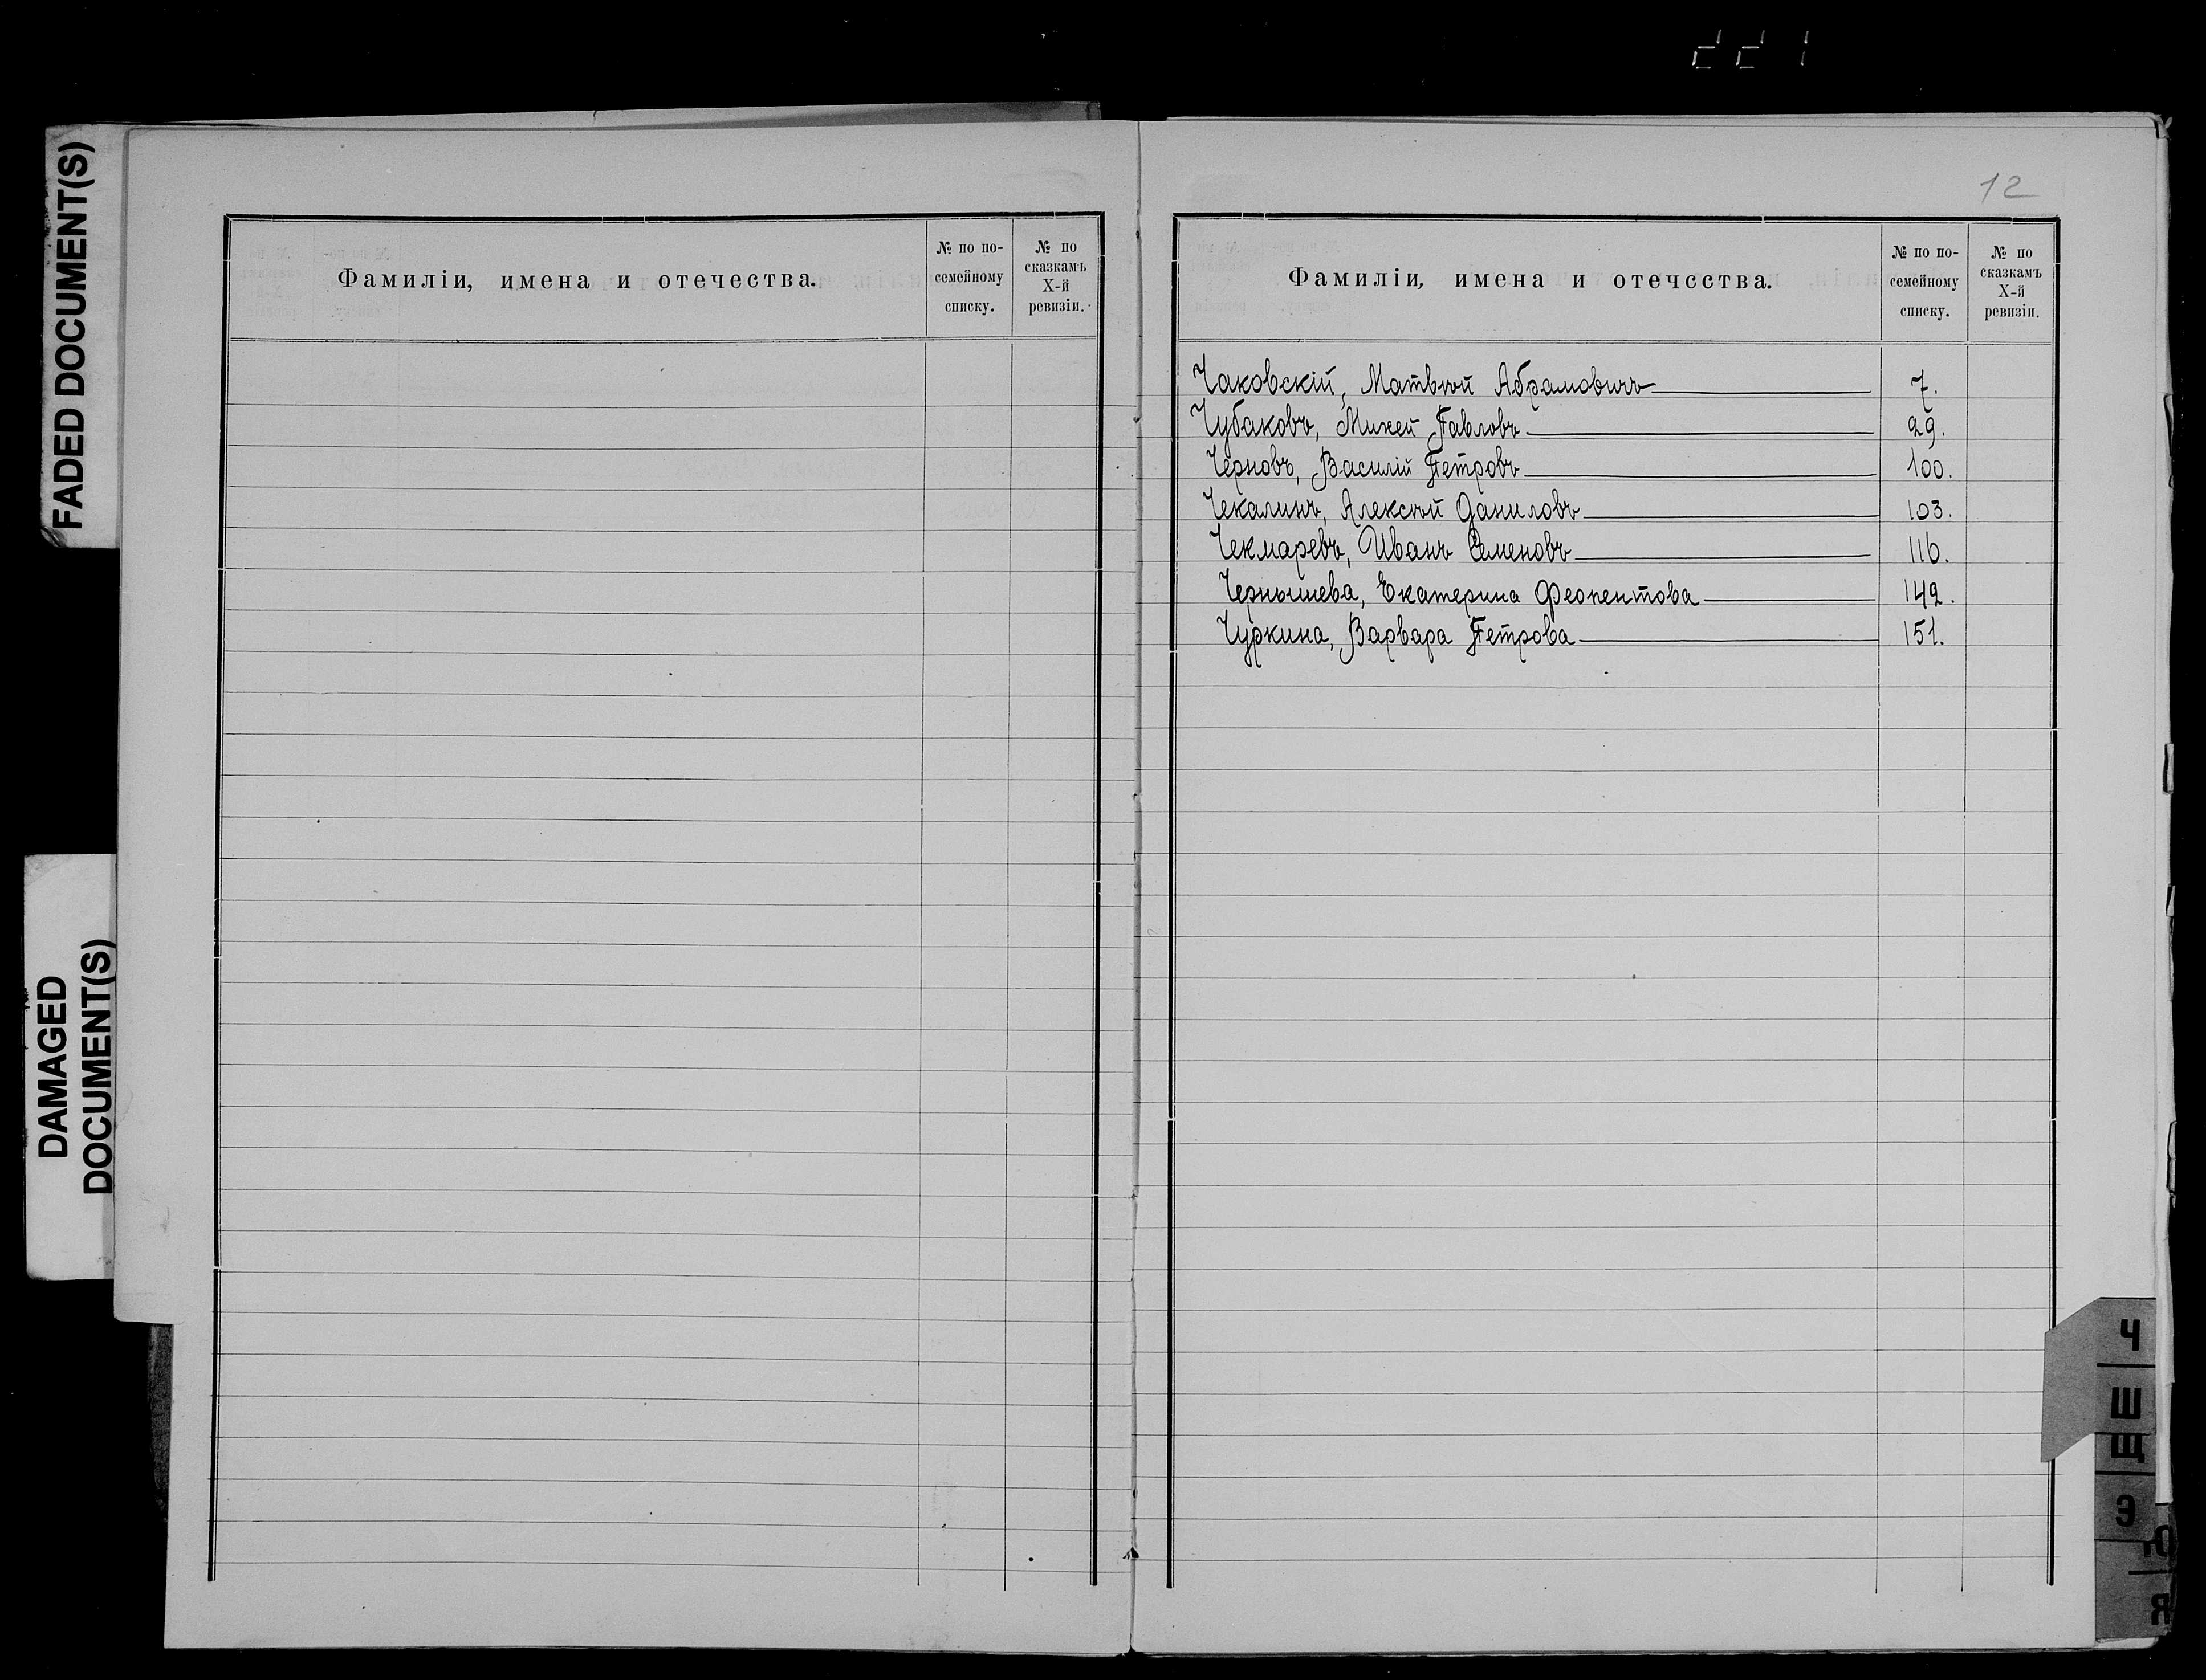 FADED DOCUMENT(S)
DAMAGED
DOCUMENT(S)
Фамиліи, имена и отечества.
№ по по-
семейному
списку.
№ по
сказкамъ
X-й
ревизіи.
12
Фамиліи, имена и отечества.
№ по по-
семейному
списку.
№ по
сказкамъ
X-й
ревизіи.
Чаковскій, Матвѣй Абрамовичъ 7.
Чубаковъ, Михей Павловъ 29.
Черновъ, Василій Петровъ 100.
Чекалинъ, Алексѣй Даниловъ 103.
Чекмаревъ, Иванъ Семеновъ 116.
Чернышева, Екатерина Феопентова 142.
Чуркина, Варвара Петрова 151.
Ч
Ш
Щ
Э
Ю
Я